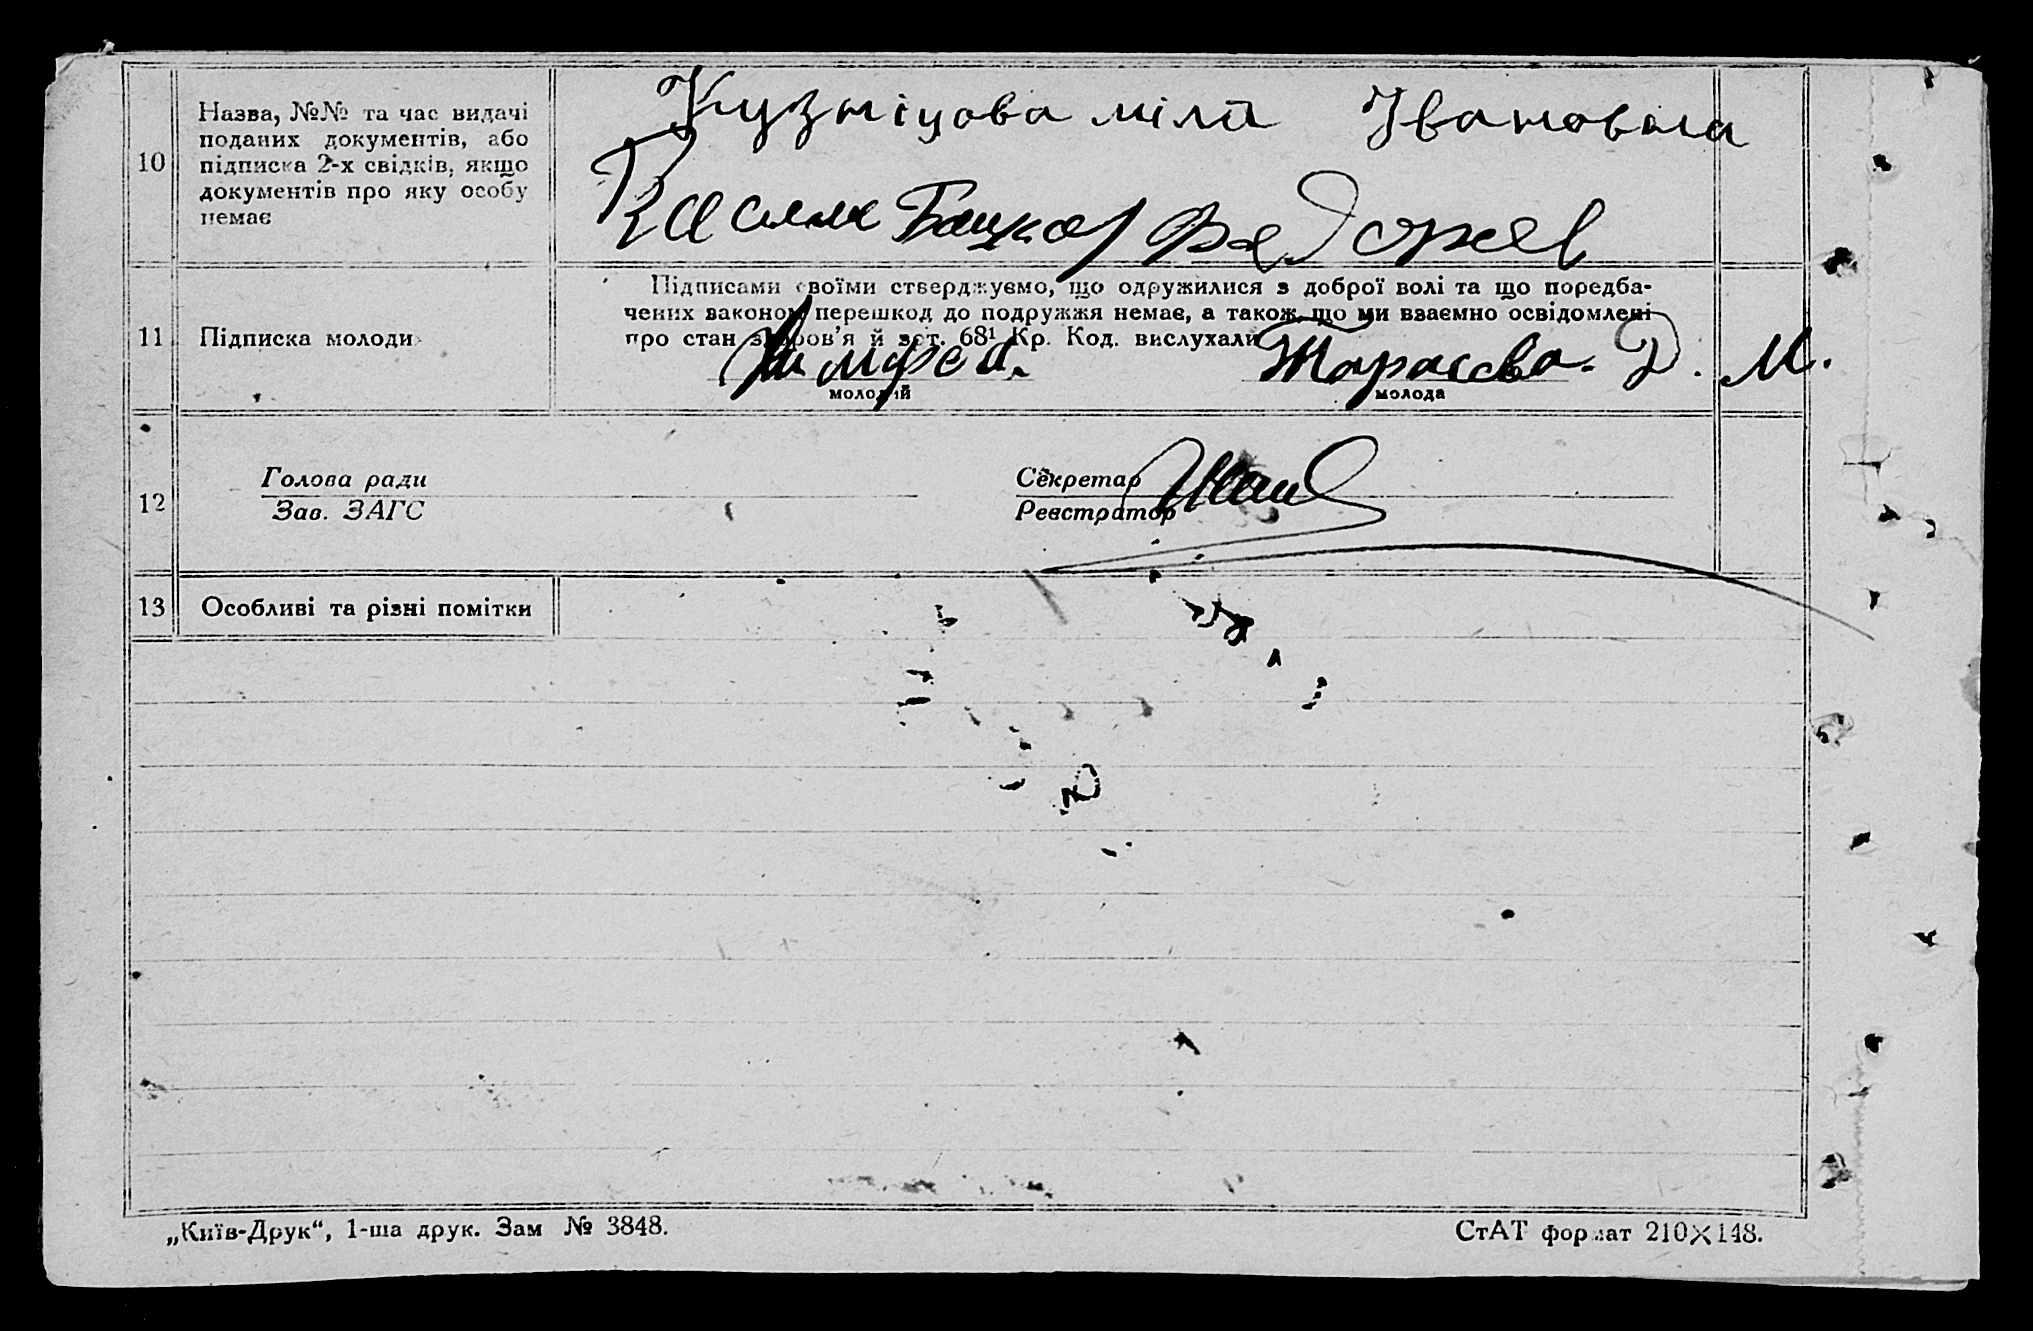 10
Назва, №№ та час видачі
поданих документів, або
підписка 2-х свідків, якщо
документів про яку особу
немає
Кузніцова міля Івановна
11
Підписка молоди
Підписами своїми стверджуємо, що одружилися з доброї волі та що поредба-
чених законом перешкод до подружжя немає, а також що ми взаємно освідомлені
про стан здоров'я й зст. 68¹ Кр. Код. вислухали
Тарасова. Д. М.
молодий
молода
12
Голова ради
Зав. ЗАГС
Секретар
Реєстратор
13
Особливі та різні помітки
„Київ-Друк“, 1-ша друк. Зам № 3848.
СтАТ формат 210×148.